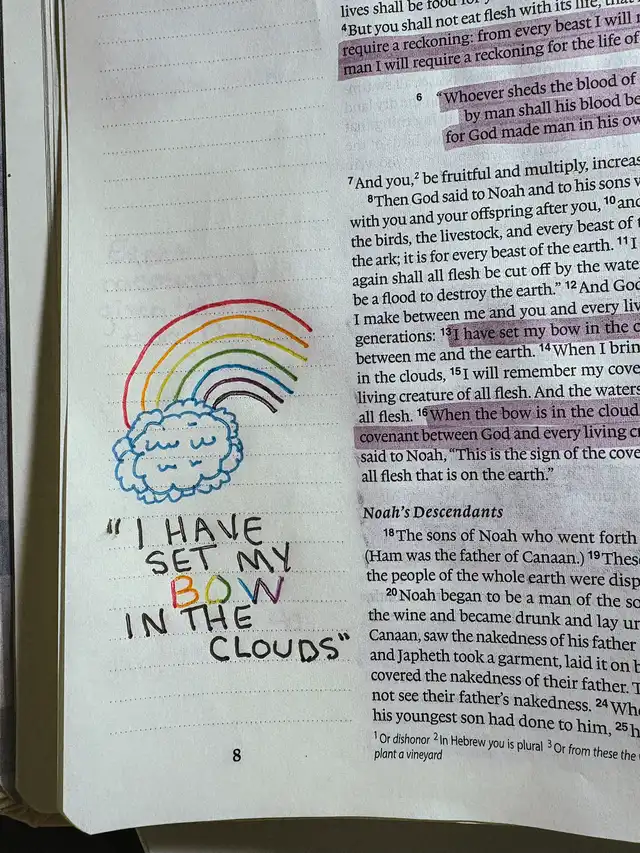 "I HAVE
SET MY
BOW
IN THE
CLOUDS"
8
lives shall be food for
4But you shall not eat flesh with its life, that
require a reckoning: from every beast I will
man I will require a reckoning for the life of
6 "Whoever sheds the blood of
by man shall his blood be
for God made man in his
7And you,2 be fruitful and multiply,
8Then God said to Noah and to his sons
with you and your offspring after you, 10and
the birds, the livestock, and every beast of
the ark; it is for every beast of the earth. 11I
again shall all flesh be cut off by the
be a flood to destroy the earth." 12And God
I make between me and you and every
generations: 13I have set my bow in the
between me and the earth. 14When I
in the clouds, 15I will remember my
living creature of all flesh. And the waters
all flesh. 16When the bow is in the
covenant between God and every living
said to Noah, "This is the sign of the
all flesh that is on the earth."
Noah's Descendants
18The sons of Noah who went forth
(Ham was the father of Canaan.) 19
the people of the whole earth were
20Noah began to be a man of the
the wine and became drunk and lay
Canaan, saw the nakedness of his father
and Japheth took a garment, laid it on
covered the nakedness of their father.
not see their father's nakedness. 24
his youngest son had done to him, 25
1 Or dishonor 2 In Hebrew you is plural 3 Or from these the
plant a vineyard